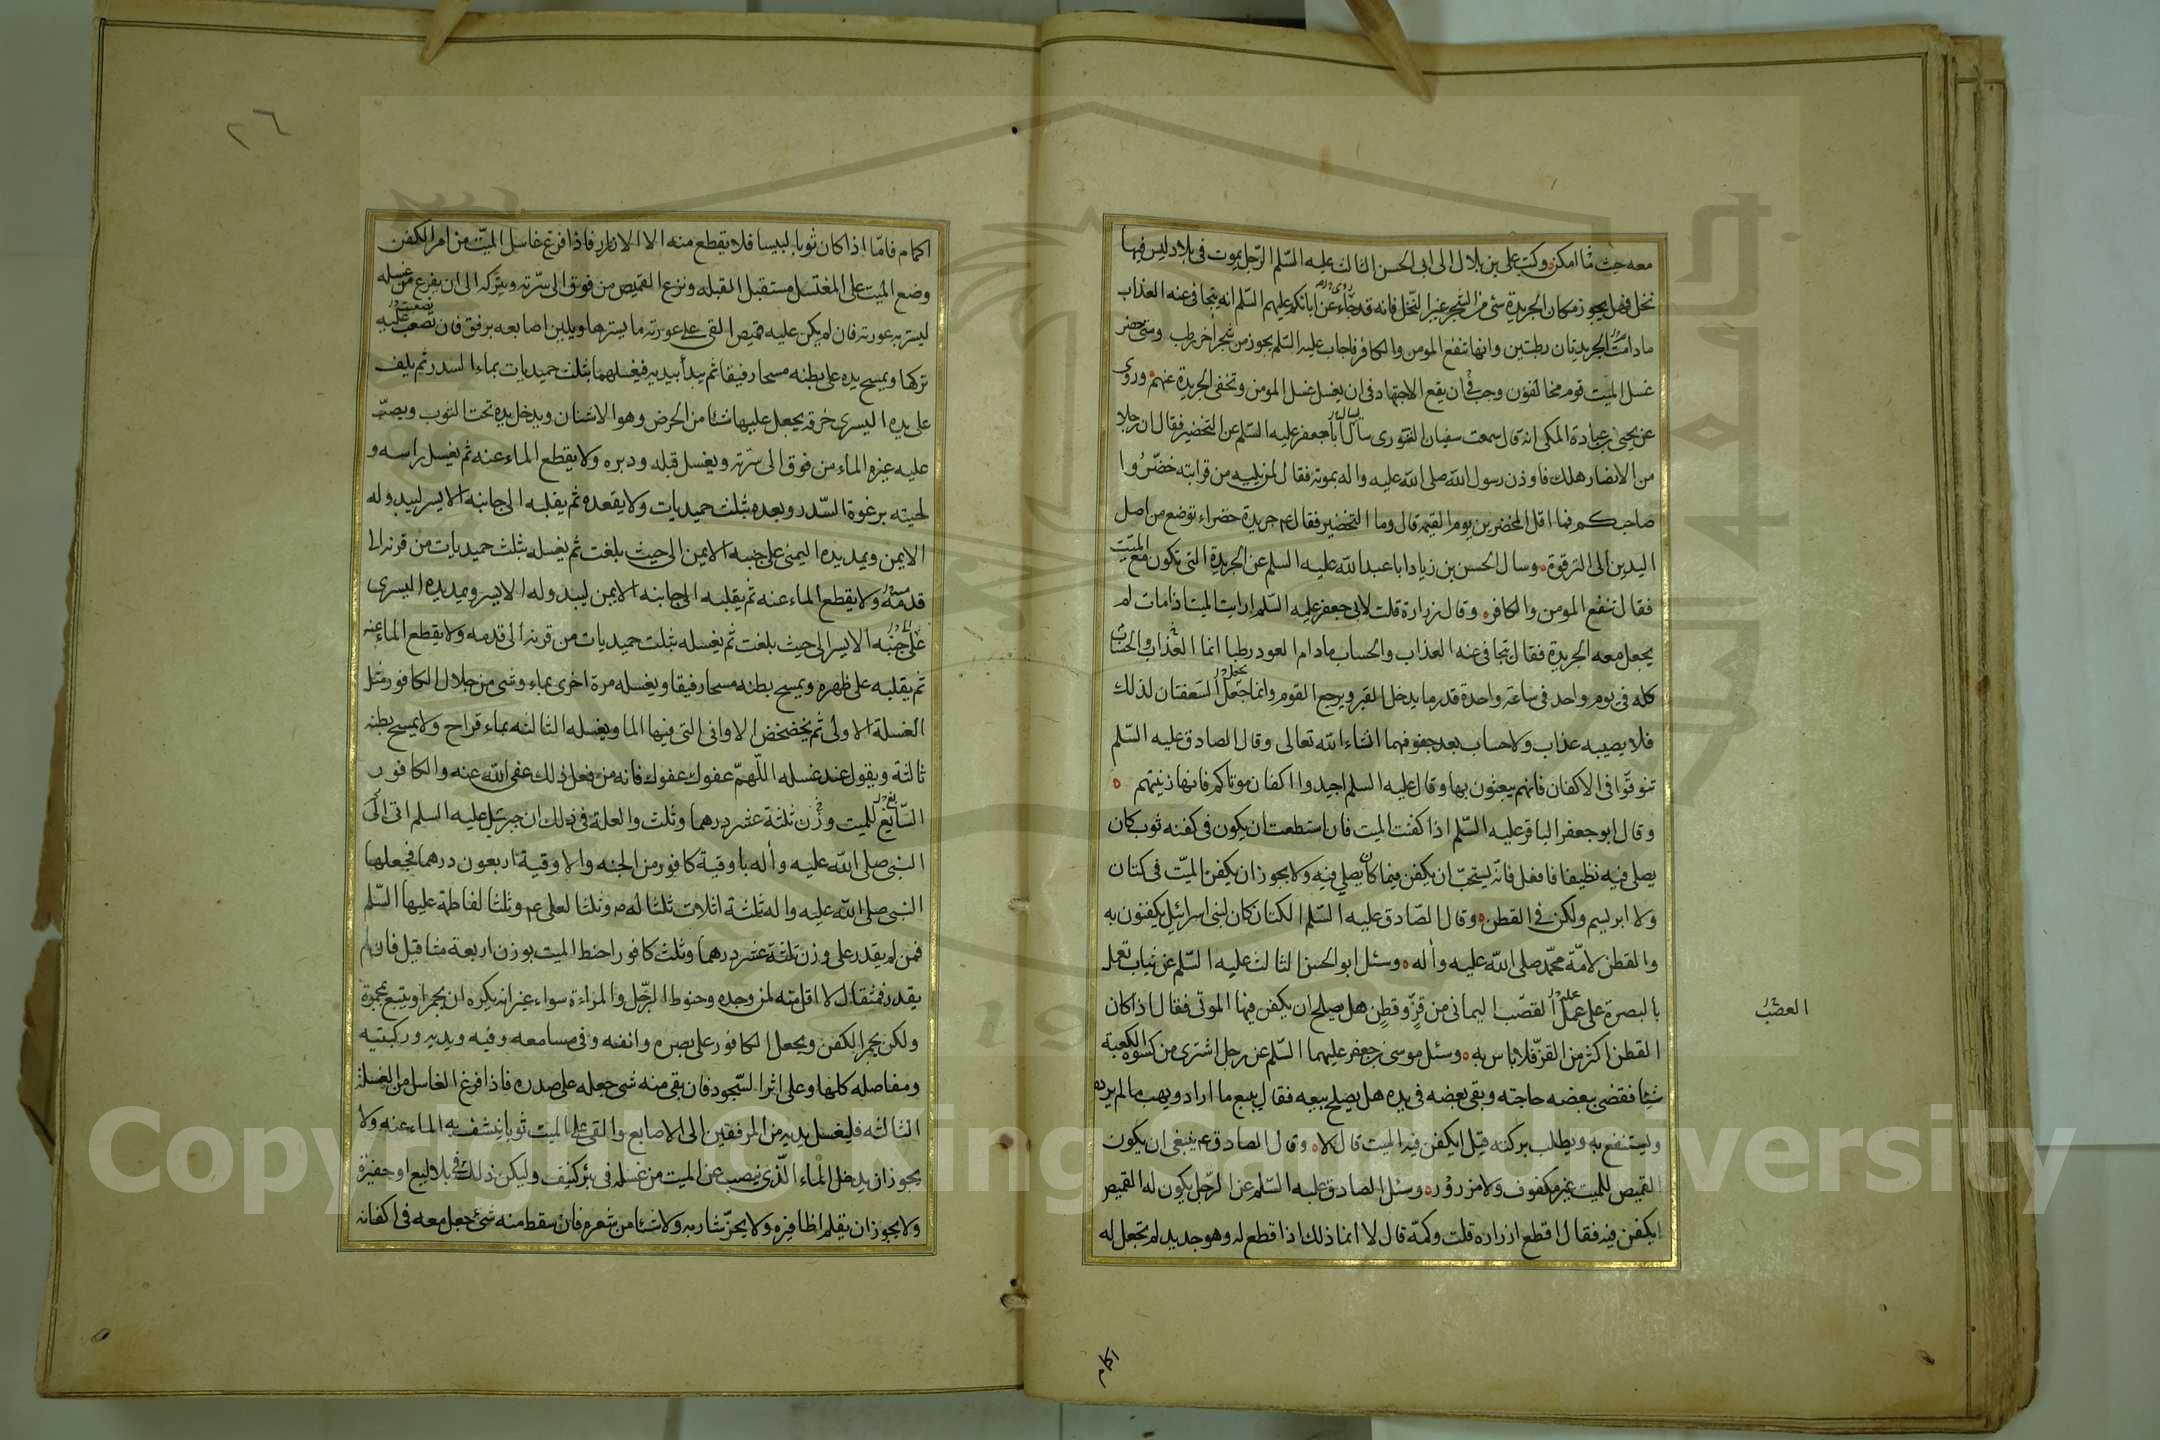 معه حيث ما امكن وكتب علي بن بلال الى ابى الحسن الثالث عليه السلم الرجل يموت فى بلاد ليس فيها
نخل فهل يجوز مكان الجريدة شئ من الشجر غير النخل فانه قد جاء عن ابائكم عليهم السلم انه يتجافى عنه العذاب
ما دامت الجريدتان رطبتين وانها تنفع المومن والكافر فاجاب عليه السلم يجوز من شجر اخر رطب ومتى حضر
غسل الميت قوم مخالفون وجب ان يقع الاجتهاد فى ان يغسل غسل المومن وتخفى الجريدة عنهم وروى
عن يحيى بن عبادة المكى انه قال سمعت سفيان الثورى سأل ابا جعفر عليه السلم عن التخضير فقال ان رجلا
من الانصار هلك فاوذن رسول الله صلى الله عليه واله بموته فقال لمن يليه من قرابته خضّروا
صاحبكم فما اقل المخضرين يوم القيمة قال وما التخضير فقال عم جريدة خضراء توضع من اصل
اليدين الى الترقوة وسال الحسن بن زياد ابا عبد الله عليه السلم عن الجريدة التى تكون مع الميت
فقال تنفع المومن والكافر وقال زرارة قلت لابى جعفر عليه السلم ارايت الميت اذا مات لم
يجعل معه الجريدة فقال تجافى عنه العذاب والحساب مادام العود رطبا انما العذاب والحساب
كله فى يوم واحد فى ساعة واحدة قدر ما يدخل القبر ويرجع القوم وانما جعل السعفتان لذلك
فلا يصيبه عذاب ولا حساب بعد جفوفهما انشاء الله تعالى وقال الصادق عليه السلم
تنوقوا فى الاكفان فانهم يبعثون بها وقال عليه السلم اجيدوا اكفان موتاكم فانها زينتهم
وقال ابو جعفر الباقر عليه السلم اذا كفنت الميت فان استطعت ان يكون فى كفنه ثوب كان
يصلى فيه نظيفا فافعل فانه يستحب ان يكفن فيما كان يصلى فيه ولا يجوز ان يكفن الميت فى كتان
ولا ابريسم ولكن فى القطن وقال الصادق عليه السلم الكتان كان لبنى اسرائيل يكفنون به
والقطن لامة محمد صلى الله عليه واله وسئل ابو الحسن الثالث عليه السلم عن ثياب تعمل
بالبصرة على عمل القصب اليمانى من قز وقطن هل يصلح ان يكفن فيها الموتى فقال اذا كان
العصب
القطن اكثر من القز فلا باس به وسئل موسى بن جعفر عليهما السلم عن رجل اشترى من كسوة الكعبة
شيئا فقضى ببعضه حاجته وبقى بعضه فى يده هل يصلح بيعه فقال يبيع ما اراد ويهب ما لم يرده
ويستنفع به ويطلب بركته قيل ايكفن فيه الميت قال لا وقال الصادق عم ينبغى ان يكون
القميص للميت غير مكفوف ولا مزرور وسئل الصادق عليه السلم عن الرجل يكون له القميص
ايكفن فيه فقال اقطع ازراره قلت وكمه قال لا انما ذلك اذا قطع له وهو جديد لم يجعل له
اكمام
٢٦
اكمام فامّا اذا كان ثوبا لبيسا فلا يقطع منه الا الازرار فاذا فرغ غاسل الميت من امر الكفن
وضع الميت على المغتسل مستقبل القبله ونزع القميص من فوق الى سرته ويتركه الى ان يفرغ من غسله
ليستر به عورته فان لم يكن عليه قميص القى على عورته ما يسترها ويلين اصابعه برفق فان تصعب عليه
تركها ويمسح يده على بطنه مسحا رفيقا ثم يبدأ بيديه فيغسلهما بثلث حميديات بماء السدر ثم يلف
على يده اليسرى خرقه يجعل عليها شيئا من الحرض وهو الاشنان ويدخل يده تحت الثوب ويصب
عليه غيره الماء من فوق الى سرته ويغسل قبله ودبره ولا يقطع الماء عنه ثم يغسل راسه و
لحيته برغوة السدر وبعده بثلث حميديات ولا يقعده ثم يقلبه الى جانبه الايسر ليبدو له
الايمن ويمد يده اليمنى على جنبه الايمن الى حيث بلغت ثم يغسله بثلث حميديات من قرنه الى
قدمه ولا يقطع الماء عنه ثم يقلبه الى جانبه الايمن ليبدو له الايسر ويمد يده اليسرى
على جنبه الايسر الى حيث بلغت ثم يغسله بثلث حميديات من قرنه الى قدمه ولا يقطع الماء عنه
ثم يقلبه على ظهره ويمسح بطنه مسحا رفيقا ويغسله مرة اخرى بماء وشى من جلال الكافور مثل
الغسلة الاولى ثم يخضخض الاوانى التى فيها الماء ويغسله الثالثه بماء قراح ولا يمسح بطنه
ثالثة ويقول عند غسله اللهم عفوك عفوك فانه من فعل ذلك عفى الله عنه والكافور
السائغ للميت وزن ثلثة عشر درهما وثلث والعلة فى ذلك ان جبرئيل عليه السلم اتى الى
النبى صلى الله عليه واله باوقية كافور من الجنه والاوقية اربعون درهما فجعلها
النبى صلى الله عليه واله ثلثة اثلاث ثلثا له ص وثلثا لعلى عم وثلثا لفاطمة عليها السلم
فمن لم يقدر على وزن ثلثة عشر درهما وثلث كافور احنط الميت بوزن اربعة مثاقيل فان لم
يقدر فمثقال لا اقل منه لمن وجده وحنوط الرجل والمراءة سواء غير انه يكره ان يجمر او يتبع بمجمرة
ولكن يجمر الكفن ويجعل الكافور على بصره وانفه وفى مسامعه وفيه ويديه وركبتيه
ومفاصله كلها وعلى اثر السجود فان بقى منه شى جعله على صدره فاذا فرغ الغاسل من الغسلة
الثالثه فليغسل يديه من المرفقين الى الاصابع والقى على الميت ثوبا ينشف به الماء عنه ولا
يجوز ان يدخل الماء الذى ينصب عن الميت من غسله فى بئر كنيف وليكن ذلك فى بلاليع او حفيرة
ولا يجوز ان يقلم اظافيره ولا يجزّ شاربه ولا شيئا من شعره فان سقط منه شئ جعل معه فى اكفانه
Copyright © King Saud University